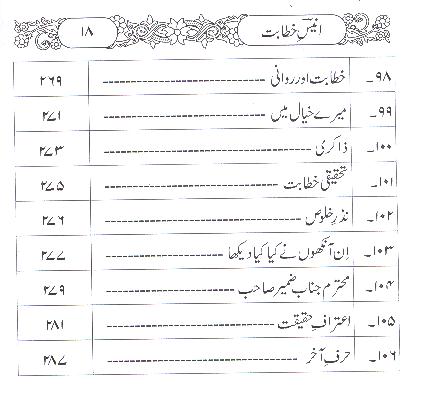 انیسِ خطابت ۱۸
۹۸۔ خطابت اور روانی ۲۶۹
۹۹۔ میرے خیال میں ۲۷۱
۱۰۰۔ ذاکری ۲۷۳
۱۰۱۔ تحقیقی خطابت ۲۷۵
۱۰۲۔ نذرِ خلوص ۲۷۶
۱۰۳۔ اِن آنکھوں نے کیا کیا دیکھا ۲۷۷
۱۰۴۔ محترم جناب ضمیر صاحب ۲۷۹
۱۰۵۔ اعترافِ حقیقت ۲۸۱
۱۰۶۔ حرفِ آخر ۲۸۷